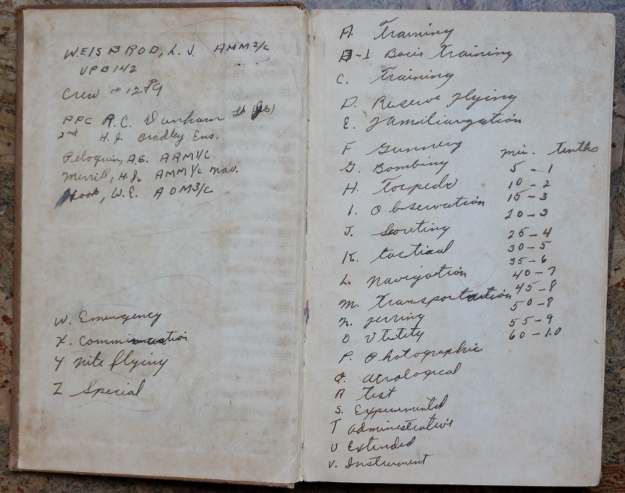 WEISBROD, L. J. AMM3/c
VPB142
Crew # 12
PPC R.C. Dunham Lt (jg)
2nd H.J. Bradley Ens.
Peloquin, A.G. ARM1/c
Merrill, H.J. AMM1/c Nav.
Hook, W.E. AOM3/c
W. Emergency
X. Communication
Y Nite flying
Z Special
A Training
B-1 Bacis Training
C. Training
D. Reserve Flying
E. Familiarization
F Gunnery
G. Bombing
H. Torpedo
I. Observation
J. Scouting
K. tactical
L. Navigation
M. Transportation
N. Ferring
O Utility
P. Photographic
Q. Aerological
R Test
S. Experimental
T Administrative
U Extended
V. Instrument
min. tenths
5 - 1
10 - 2
15 - 3
20 - 3
25 - 4
30 - 5
35 - 6
40 - 7
45 - 8
50 - 8
55 - 9
60 - 1.0